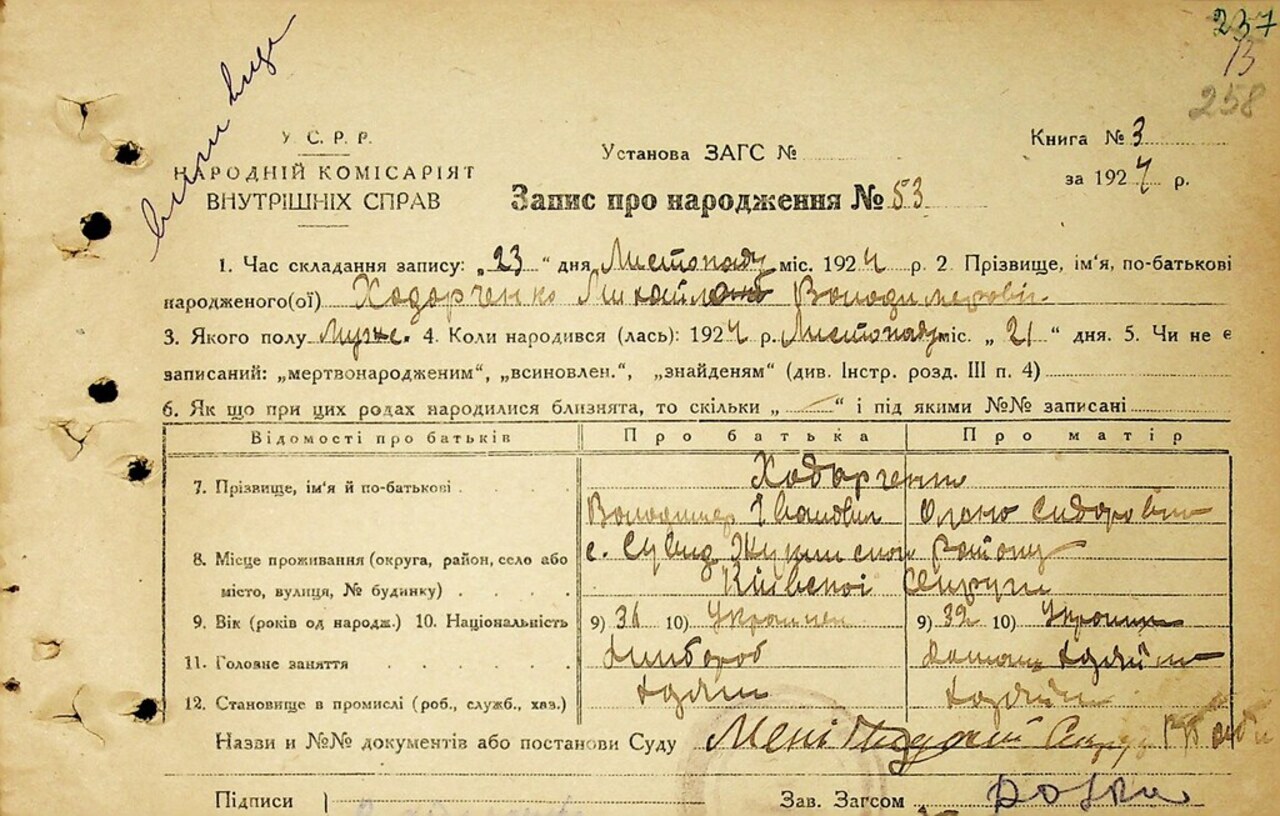 237
13
258
У. С. Р. Р.
НАРОДНІЙ КОМІСАРІЯТ
ВНУТРІШНІХ СПРАВ
Установа ЗАГС №
Книга № 3
за 1927 р.
Запис про народження № 53
1. Час складання запису: „23“ дня Листопаду міс. 1927 р. 2. Прізвище, ім'я, по-батькові
народженого(ої) Ходорченко Михайло Володимерович
3. Якого полу Мужс. 4. Коли народився (лась): 1927 р. Листопаду міс. „21“ дня. 5. Чи не є
записаний: „мертвонародженим“, „всиновлен.“, „знайденям“ (див. Інстр. розд. III п. 4)
6. Як що при цих родах народилися близнята, то скільки „ “ і під якими №№ записані
Відомості про батьків Про батька Про матір
7. Прізвище, ім'я й по-батькові Ходорченки
Володимер Іванович
8. Місце проживання (округа, район, село або с. Сувид району
місто, вулиця, № будинку) Київської Округи
9. Вік (років од народж.) 10. Національність 9) 36 10) Українець 9) 32 10)
11. Головне заняття Хлібороб
12. Становище в промислі (роб., служб., хаз.)
Назви и №№ документів або постанови Суду
Підписи Зав. Загсом